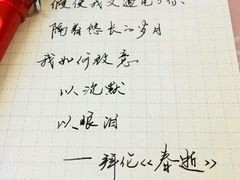 假使我又遇见你
隔着悠长的岁月
我如何致意
以沉默
以眼泪
——拜伦《春逝》